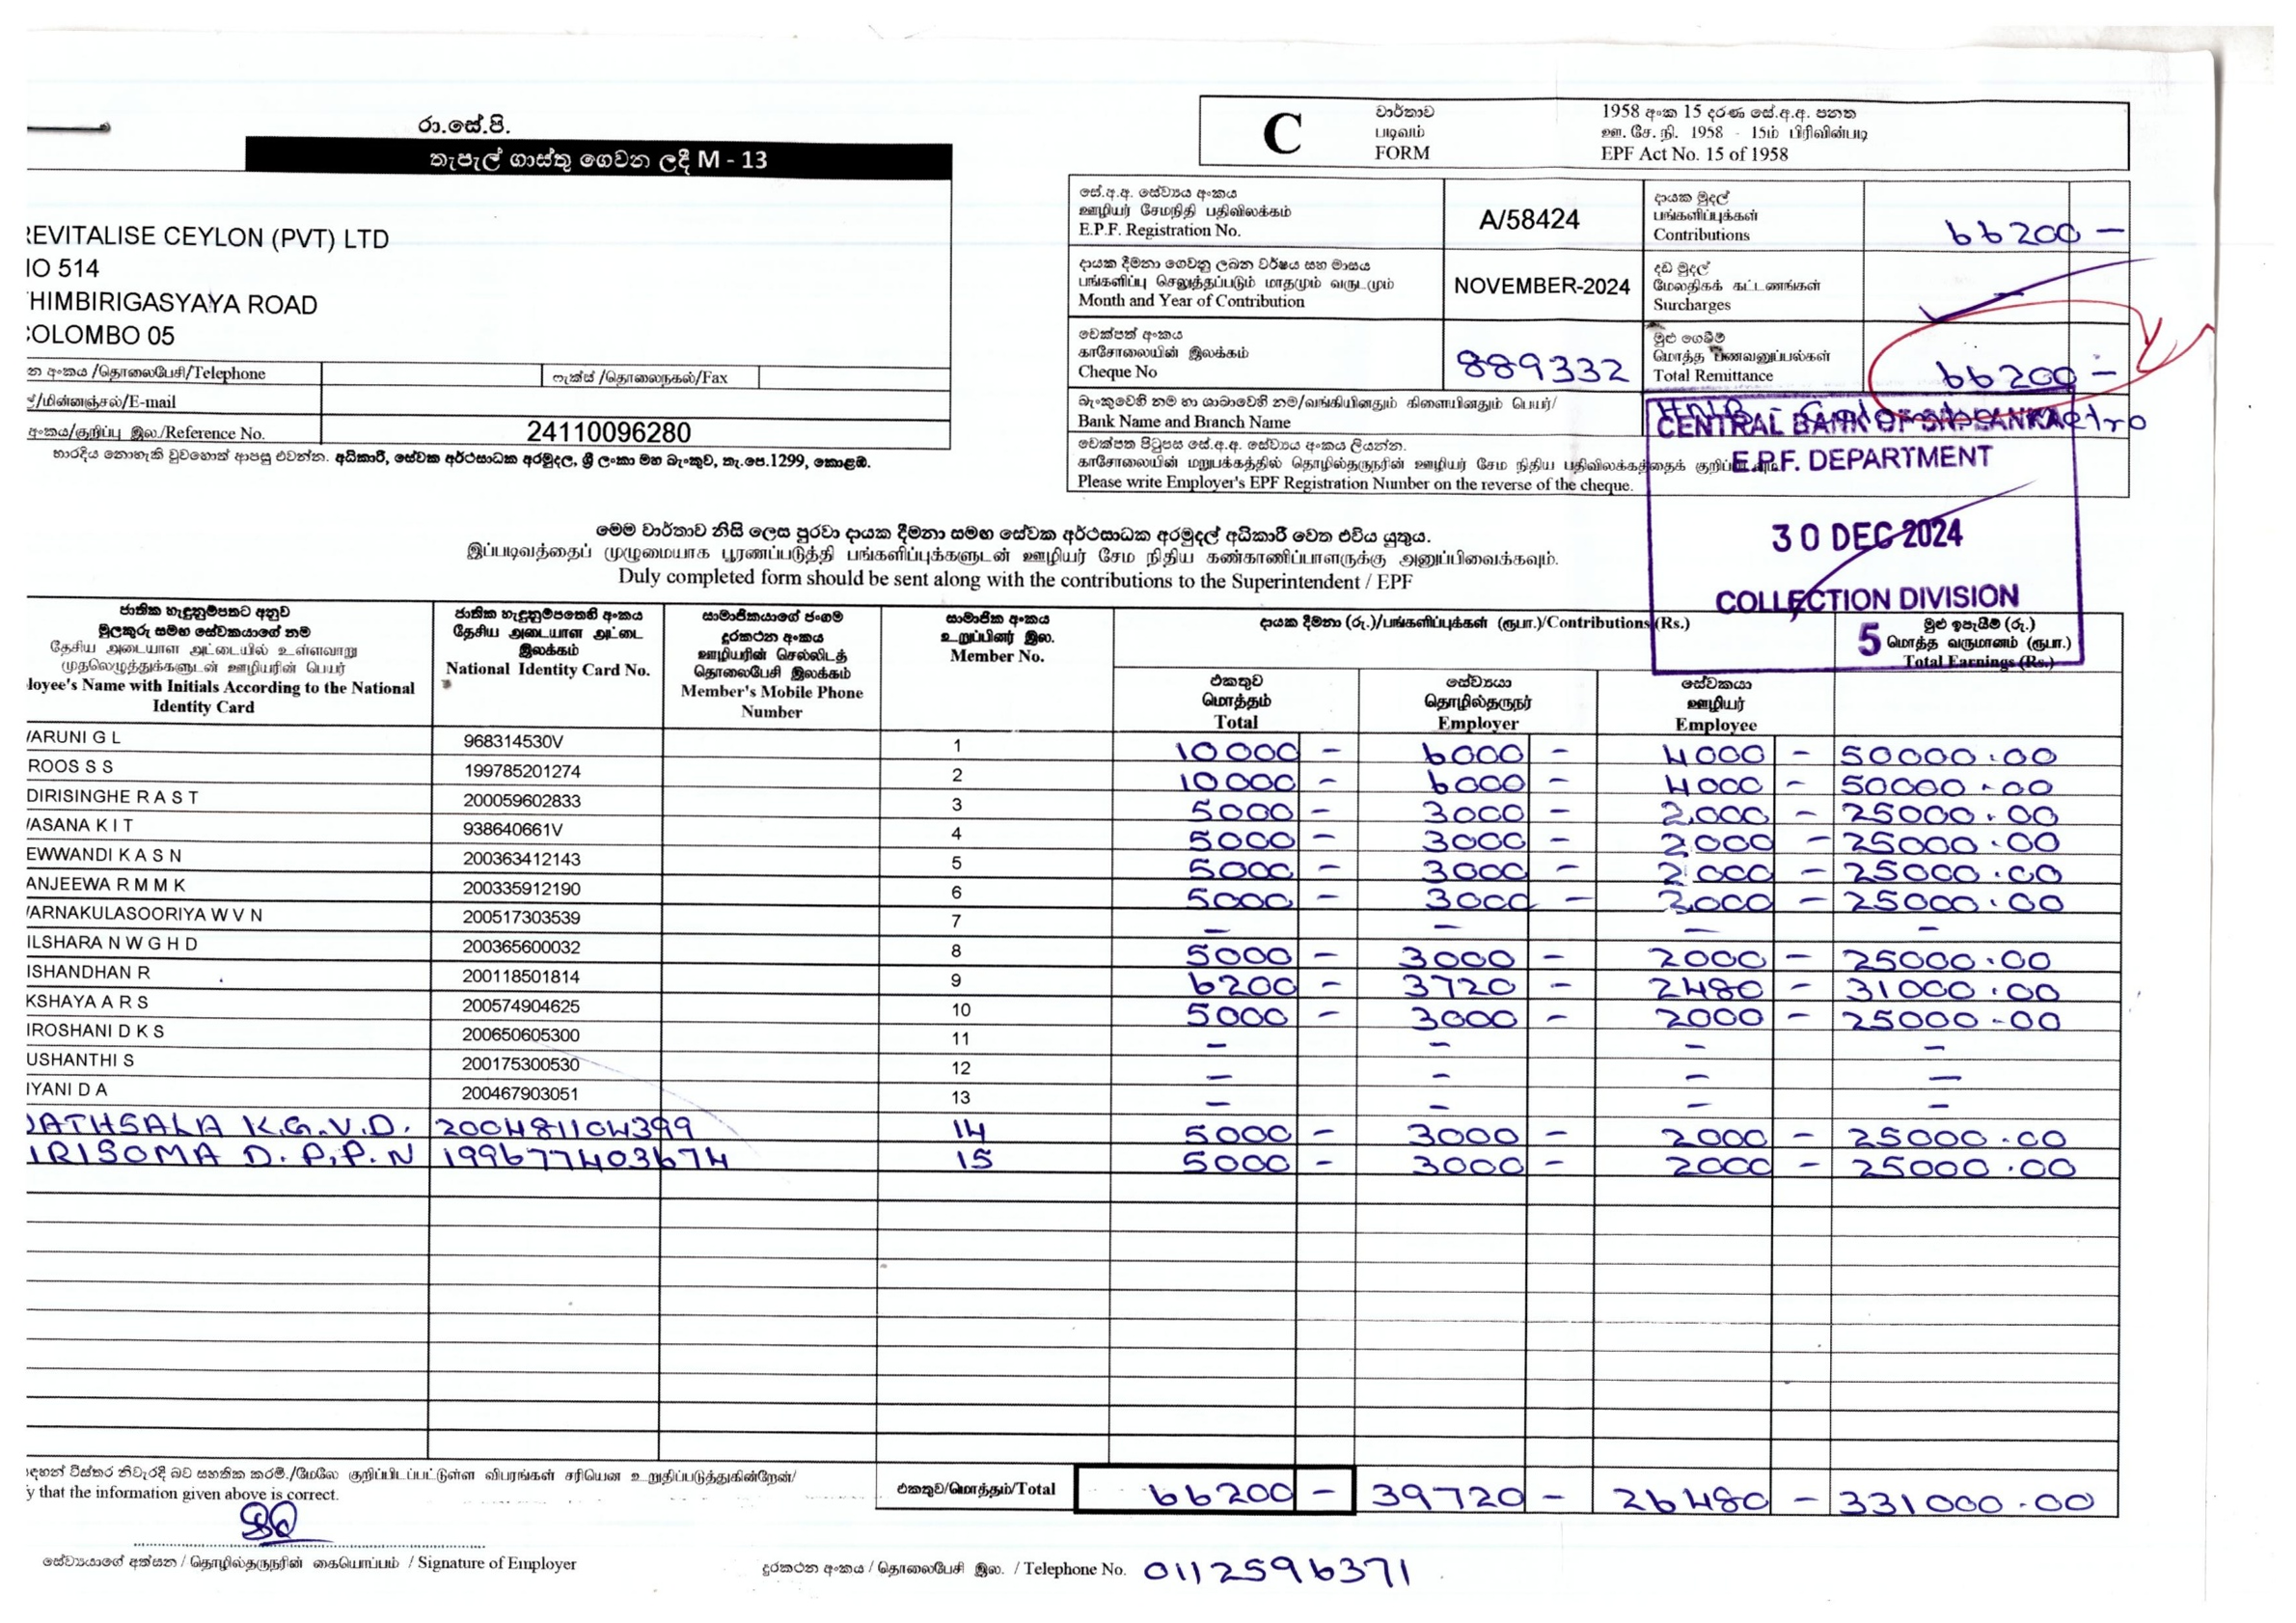 රා.සේ.පි.
තැපැල් ගාස්තු ගෙවන ලදී M - 13
REVITALISE CEYLON (PVT) LTD
NO 514
THIMBIRIGASYAYA ROAD
COLOMBO 05
න අංකය /தொலைபேசி/Telephone
ෆැක්ස් /தொலைநகல்/Fax
/மின்னஞ்சல்/E-mail
අංකය/குறிப்பு இல./Reference No. 24110096280
භාරදිය නොහැකි වුවහොත් ආපසු එවන්න. අධිකාරී, සේවක අර්ථසාධක අරමුදල, ශ්‍රී ලංකා මහ බැංකුව, තැ.පෙ.1299, කොළඹ.
C
වාර්තාව
படிவம்
FORM
1958 අංක 15 දරණ සේ.අ.අ. පනත
ஊ. சே. நி. 1958 - 15ம் பிரிவின்படி
EPF Act No. 15 of 1958
සේ.අ.අ. සේව්‍යය අංකය
ஊழியர் சேமநிதி பதிவிலக்கம்
E.P.F. Registration No.
A/58424
දායක මුදල්
பங்களிப்புக்கள்
Contributions
66200 -
දායක දීමනා ගෙවනු ලබන වර්ෂය සහ මාසය
பங்களிப்பு செலுத்தப்படும் மாதமும் வருடமும்
Month and Year of Contribution
NOVEMBER-2024
දඩ මුදල්
மேலதிகக் கட்டணங்கள்
Surcharges
-
චෙක්පත් අංකය
காசோலையின் இலக்கம்
Cheque No
889332
මුළු ගෙවීම්
மொத்த பணவனுப்பல்கள்
Total Remittance
66200 -
බැංකුවෙහි නම හා ශාඛාවෙහි නම/வங்கியினதும் கிளையினதும் பெயர்/
Bank Name and Branch Name
චෙක්පත පිටුපස සේ.අ.අ. සේව්‍යය අංකය ලියන්න.
காசோலையின் மறுபக்கத்தில் தொழில்தருநரின் ஊழியர் சேம நிதிய பதிவிலக்கத்தைக்
Please write Employer's EPF Registration Number on the reverse of the cheque.
CENTRAL BANK OF SRI LANKA
E.P.F. DEPARTMENT
30 DEC 2024
COLLECTION DIVISION
5
මෙම වාර්තාව නිසි ලෙස පුරවා දායක දීමනා සමඟ සේවක අර්ථසාධක අරමුදල් අධිකාරී වෙත එවිය යුතුය.
இப்படிவத்தைப் முழுமையாக பூரணப்படுத்தி பங்களிப்புக்களுடன் ஊழியர் சேம நிதிய கண்காணிப்பாளருக்கு அனுப்பிவைக்கவும்.
Duly completed form should be sent along with the contributions to the Superintendent / EPF
ජාතික හැඳුනුම්පතට අනුව
මුලකුරු සමඟ සේවකයාගේ නම
தேசிய அடையாள அட்டையில் உள்ளவாறு
முதலெழுத்துக்களுடன் ஊழியரின் பெயர்
loyee's Name with Initials According to the National
Identity Card
ජාතික හැඳුනුම්පතෙහි අංකය
தேசிய அடையாள அட்டை
இலக்கம்
National Identity Card No.
සාමාජිකයාගේ ජංගම
දුරකථන අංකය
ஊழியரின் செல்லிடத்
தொலைபேசி இலக்கம்
Member's Mobile Phone
Number
සාමාජික අංකය
உறுப்பினர் இல.
Member No.
දායක දීමනා (රු.)/பங்களிப்புக்கள் (ரூபா.)/Contributions (Rs.)
එකතුව
மொத்தம்
Total
සේව්‍යයා
தொழில்தருநர்
Employer
සේවකයා
ஊழியர்
Employee
මුළු ඉපැයීම් (රු.)
மொத்த வருமானம் (ரூபா.)
Total Earnings (Rs.)
ARUNI G L 968314530V 1 10000 - 6000 - 4000 - 50000.00
ROOS S S 199785201274 2 10000 - 6000 - 4000 - 50000.00
DIRISINGHE R A S T 200059602833 3 5000 - 3000 - 2000 - 25000.00
ASANA K I T 938640661V 4 5000 - 3000 - 2000 - 25000.00
EWWANDI K A S N 200363412143 5 5000 - 3000 - 2000 - 25000.00
ANJEEWA R M M K 200335912190 6 5000 - 3000 - 2000 - 25000.00
ARNAKULASOORIYA W V N 200517303539 7 - - - -
ILSHARA N W G H D 200365600032 8 5000 - 3000 - 2000 - 25000.00
ISHANDHAN R 200118501814 9 6200 - 3720 - 2480 - 31000.00
KSHAYA A R S 200574904625 10 5000 - 3000 - 2000 - 25000.00
IROSHANI D K S 200650605300 11 - - - -
USHANTHI S 200175300530 12 - - - -
IYANI D A 200467903051 13 - - - -
DATHSALA K.G.V.D. 200481104399 14 5000 - 3000 - 2000 - 25000.00
IRISOMA D.P.P.N 199677403674 15 5000 - 3000 - 2000 - 25000.00
සඳහන් විස්තර නිවැරදි බව සහතික කරමි./மேலே குறிப்பிடப்பட்டுள்ள விபரங்கள் சரியென உறுதிப்படுத்துகின்றேன்/
y that the information given above is correct.
එකතුව/மொத்தம்/Total 66200 - 39720 - 26480 - 331000.00
සේව්‍යයාගේ අත්සන / தொழில்தருநரின் கையொப்பம் / Signature of Employer
දුරකථන අංකය / தொலைபேசி இல. / Telephone No. 0112596371